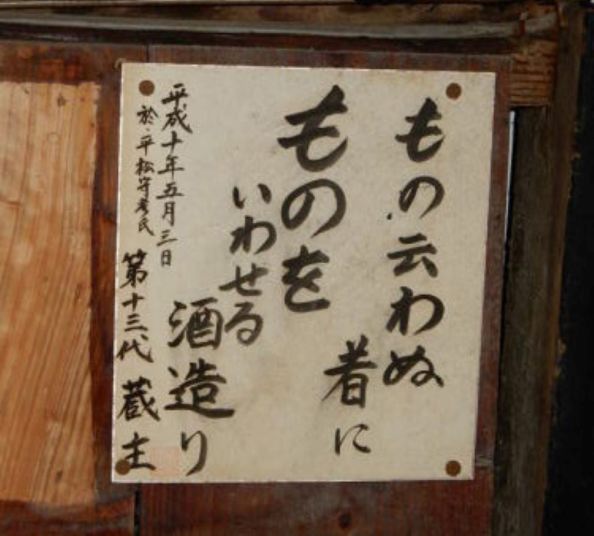 もの云わぬ
着に
ものを
いわせる
酒造り
平成十年五月三日
於・平松守彦氏
第十三代 蔵主